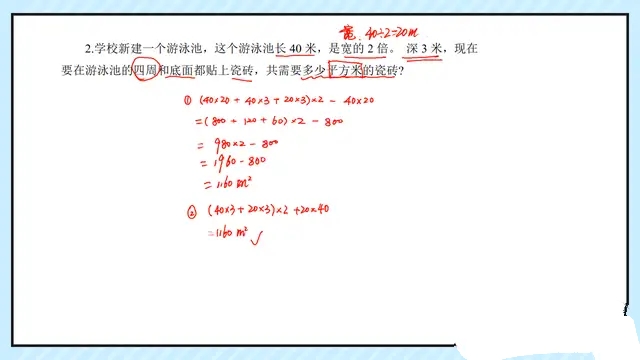 宽: 40÷2=20m
2.学校新建一个游泳池，这个游泳池长 40 米，是宽的 2 倍。 深 3 米，现在
要在游泳池的四周和底面都贴上瓷砖，共需要多少平方米的瓷砖?
① (40×20 + 40×3 + 20×3)×2 - 40×20
=(800 + 120 + 60)×2 - 800
= 980×2 - 800
= 1960 - 800
= 1160 m²
② (40×3 + 20×3)×2 + 20×40
=1160 m² ✓